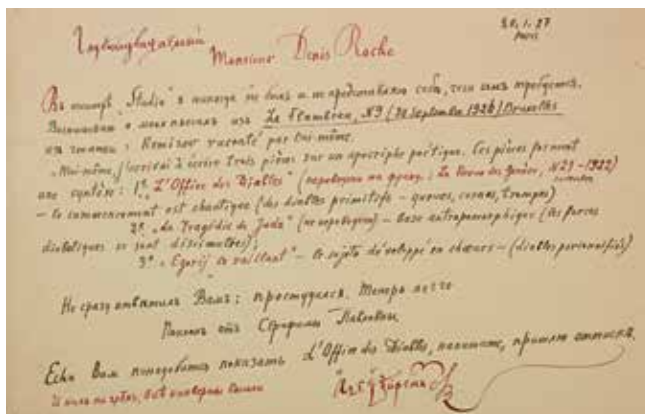 20.1.27
Paris
Глубокоуважаемый
Monsieur Denis Roche
Въ театрѣ "Studio" я никогда не былъ и не представляю себѣ, что тамъ требуется.
изъ La Flambeau, N9 (30 septembre 1926) Bruxelles
Remizov raconté par lui-même.
à écrire trois pièces sur un apocriphe poétique. Ces pièces forment
une syntèse: 1º "L'Office des Diables" La Revue de Genève, N29 - 1922)
- le commencement est chaotique (des diables primitifs - queues, cornes, trompes)
2º "La Tragédie de Juda" (не переведено) - base antropomorphique (les forces
diaboliques se sont dissimulées);
3º "Egorij le vaillant" - le sujet développé en chœurs - (diables personnifiés)
Не сразу отвѣтилъ Вамъ: простудился. Теперь легче
Поклонъ отъ Серафимы Павловны
Если Вам понадобится показать L'Office des Diables, напишите, пришлю оттискъ.